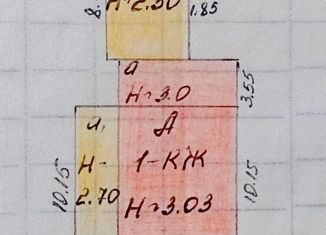 8.
H=2.50
1.85
a
H=3.0
3,55
a, A
H- 1-КЖ
2.70
H=3.03
10.15
10.15